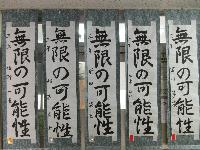 無限の可能性
無限の可能性
無限の可能性
無限の可能性
無限の可能性